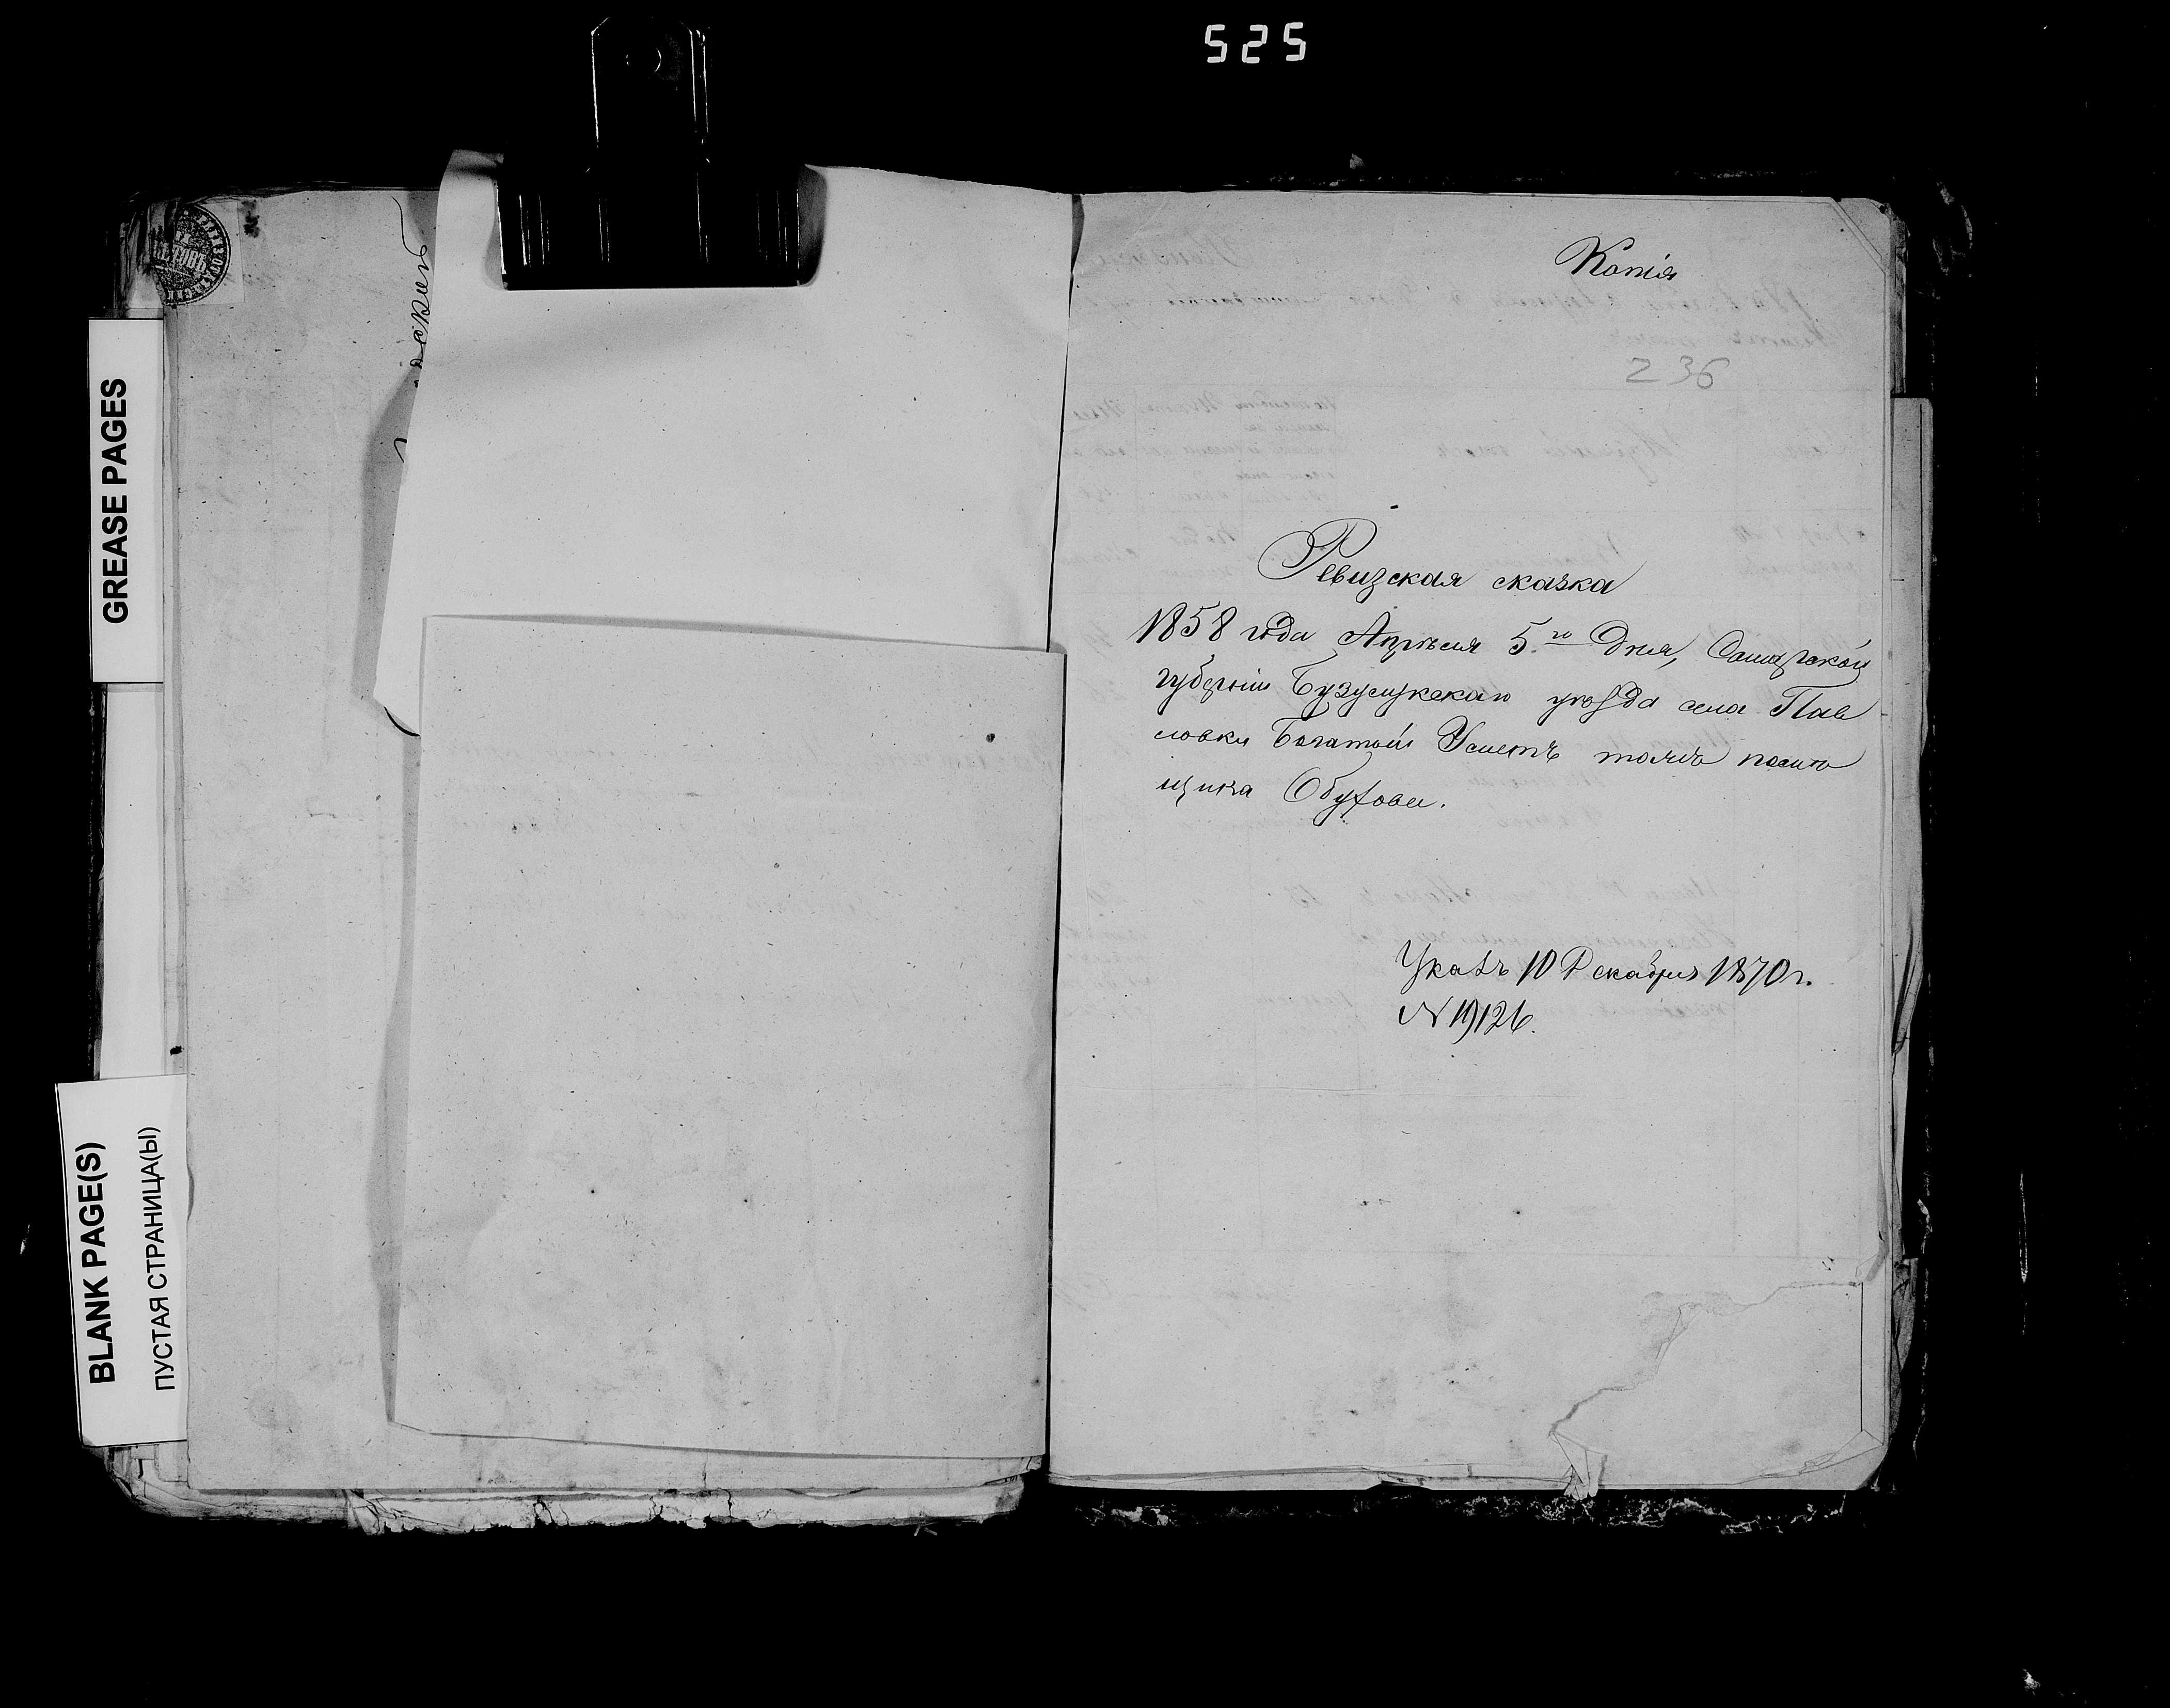 525
GREASE PAGES
BLANK PAGE(S)
ПУСТАЯ СТРАНИЦА(Ы)
Копія
236
Ревизская сказка
1858 года Апрѣля 5.го дня, Самарской
губерніи Бузулукскаго уѣзда села Пав
ловки Богатой тожъ помѣ
щика Обухова.
Указъ 10 Декабря 1870 г.
N 19126.